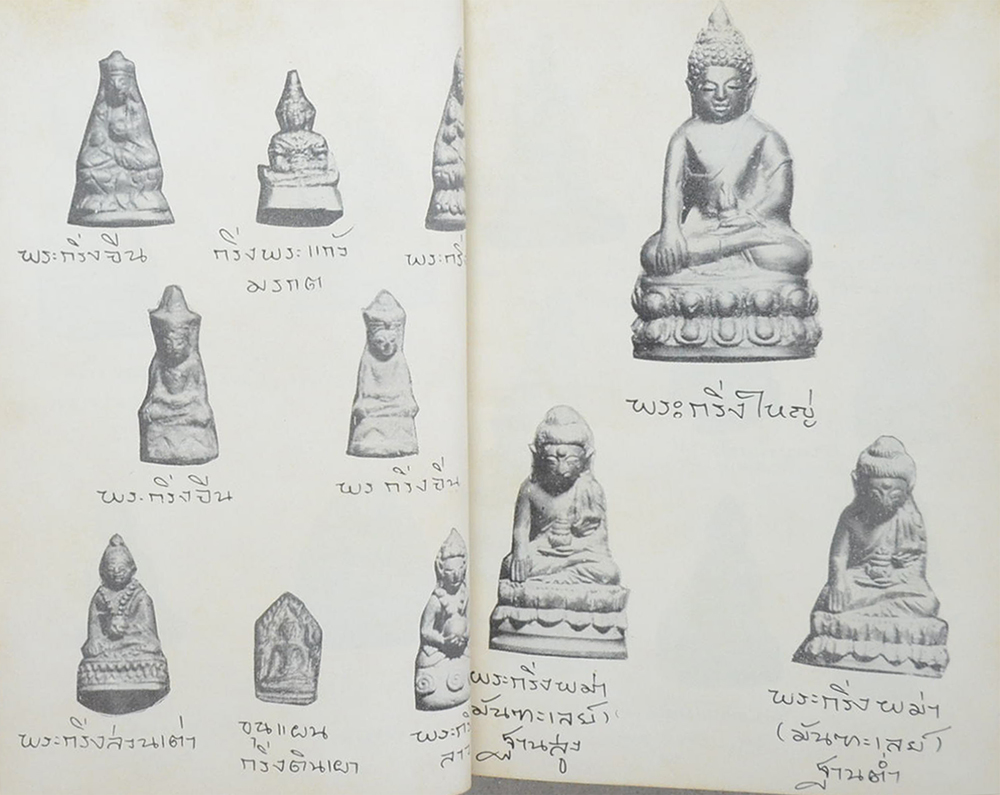 พระกริ่งจีน
กริ่งพระแก้ว
มรกต
พระกริ่ง
พระกริ่งจีน
พระกริ่งจีน
พระกริ่งส่วนเต่า
ขุนแผน
กริ่งดินเผา
พระกริ่ง
พระกริ่งใหญ่
พระกริ่งพม่า
(มัณฑะเลย์)
ฐานสูง
พระกริ่งพม่า
(มัณฑะเลย์)
ฐานต่ำ